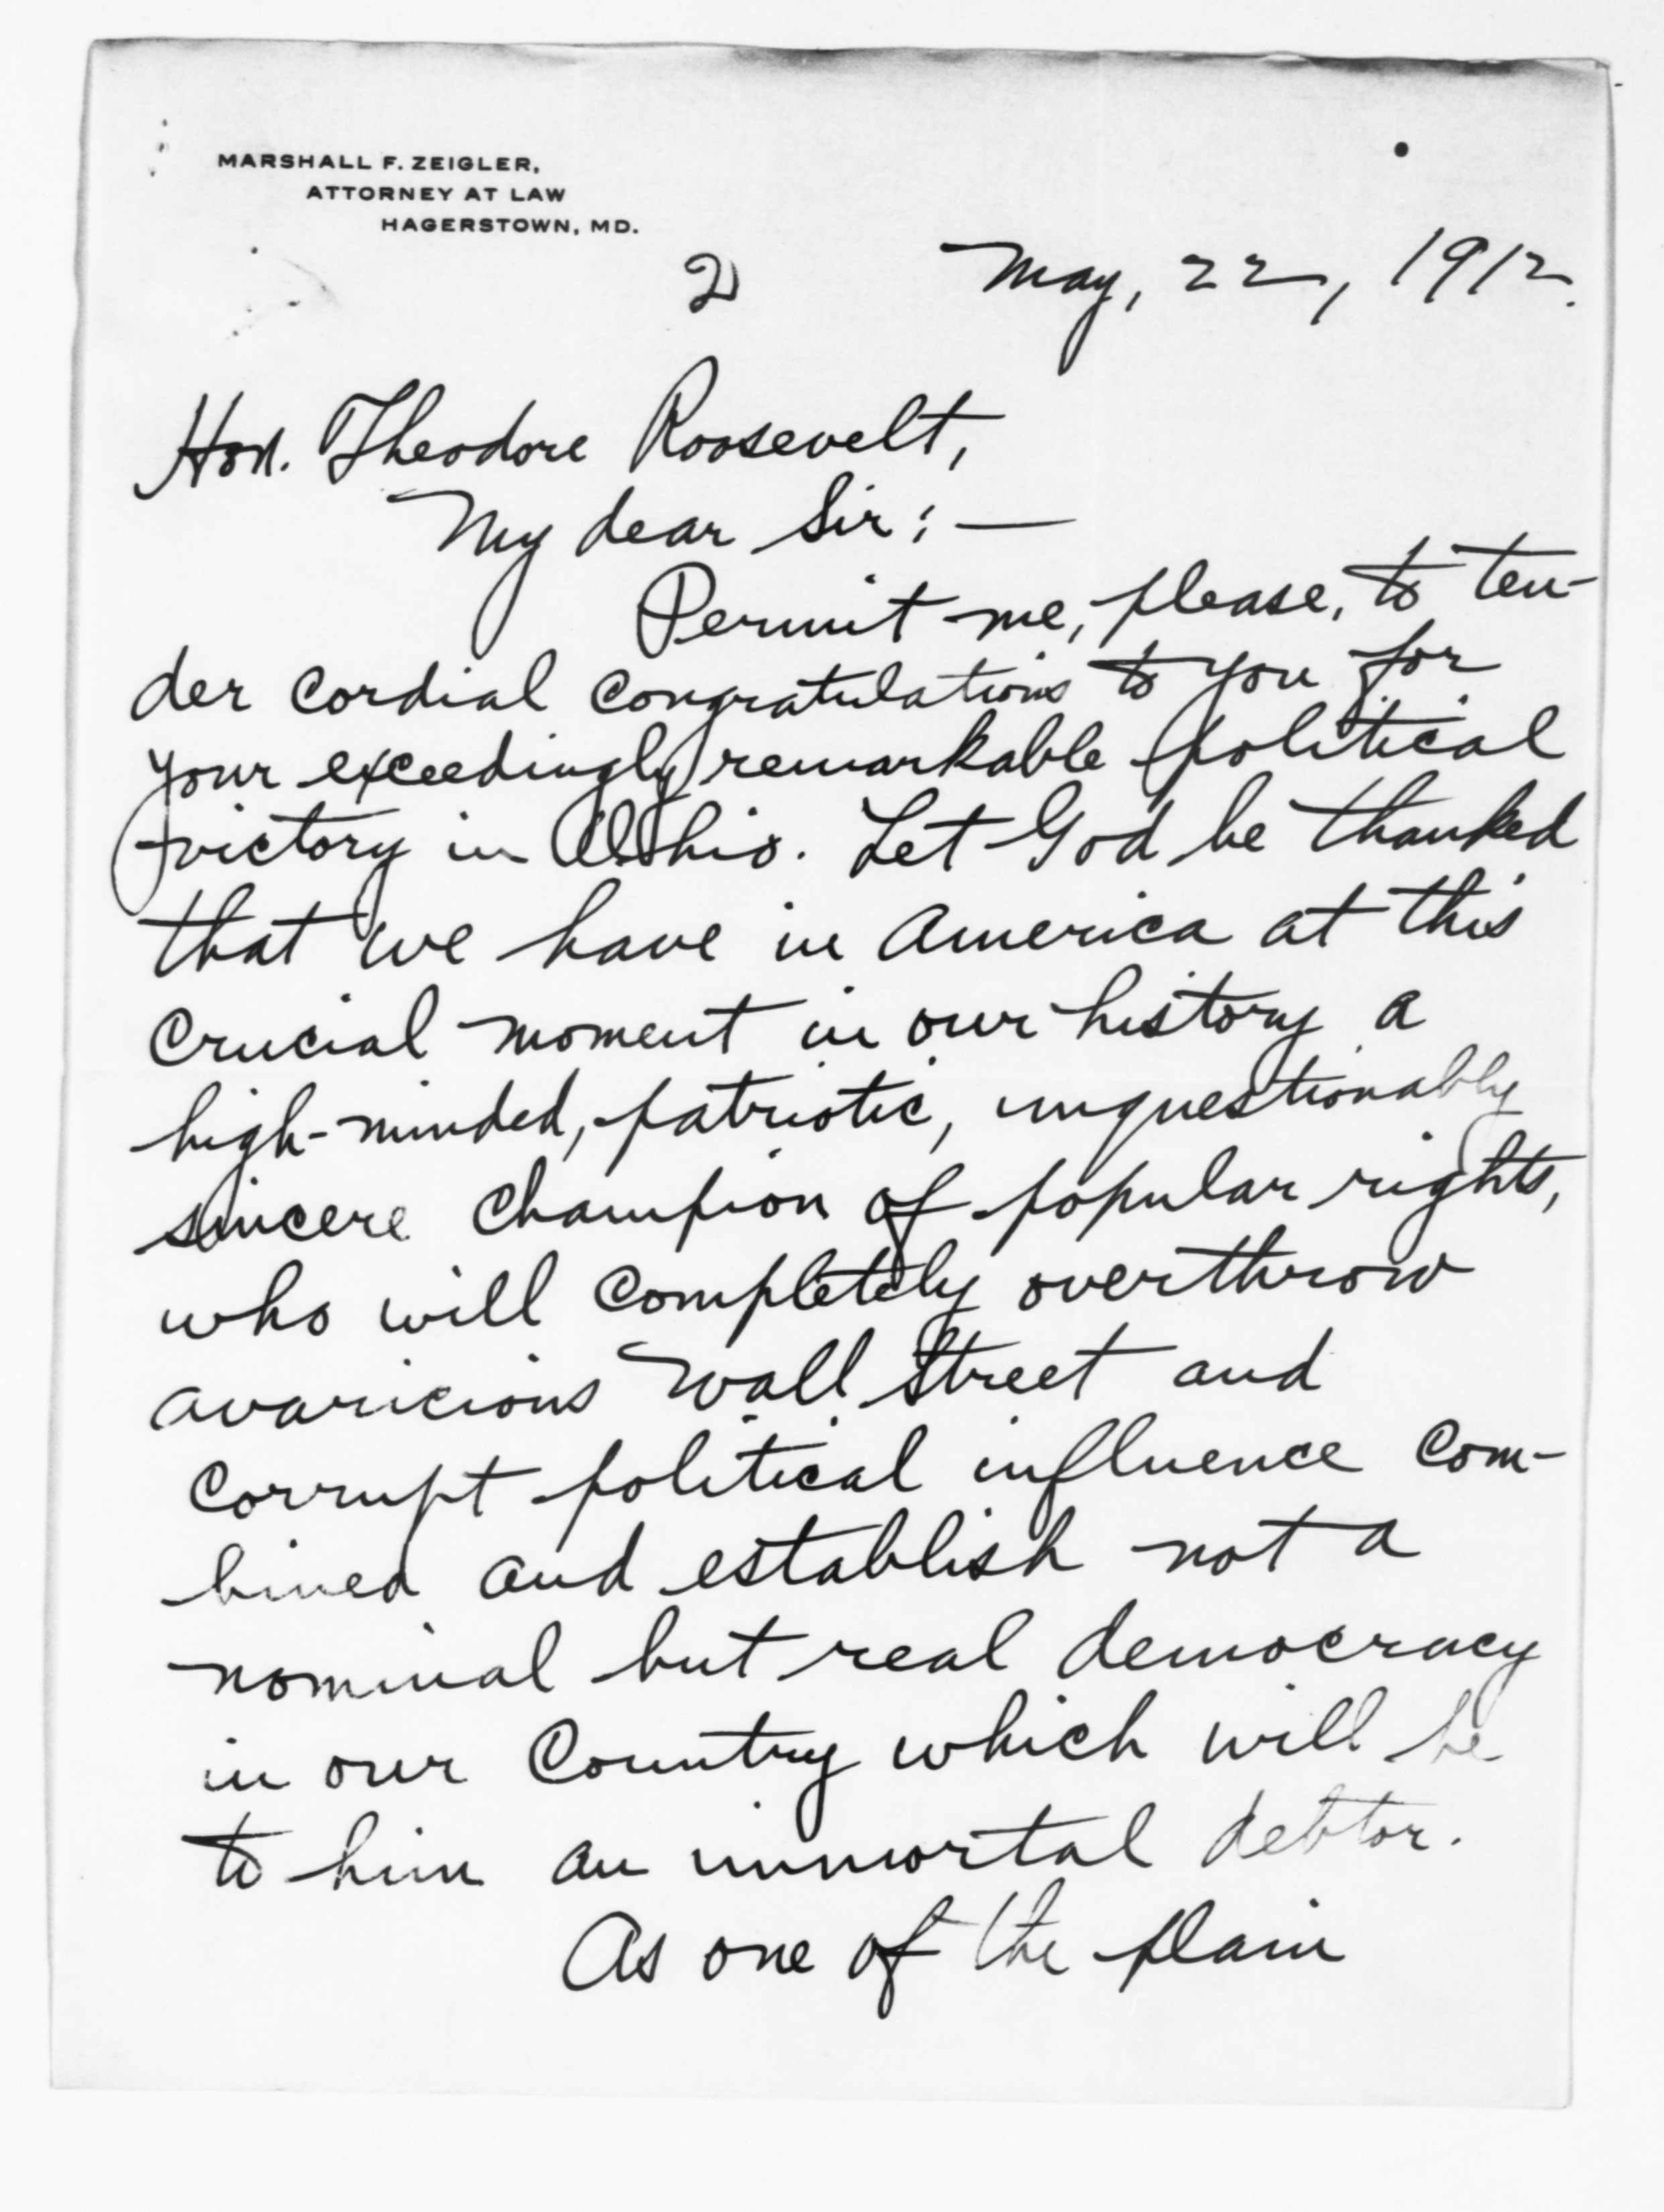 MARSHALL F. ZEIGLER,
ATTORNEY AT LAW
HAGERSTOWN, MD.
2
May, 22, 1912.
Hon. Theodore Roosevelt,
My dear Sir:—
Permit me, please, to ten-
der cordial congratulations to you for
your exceedingly remarkable political
victory in Ohio. Let God be thanked
that we have in America at this
crucial moment in our history a
high-minded, patriotic, unquestionably
sincere champion of popular rights,
who will completely overthrow
avaricious Wall Street and
corrupt political influence com-
bined and establish not a
nominal but real democracy
in our Country which will be
to him an immortal debtor.
As one of the plain